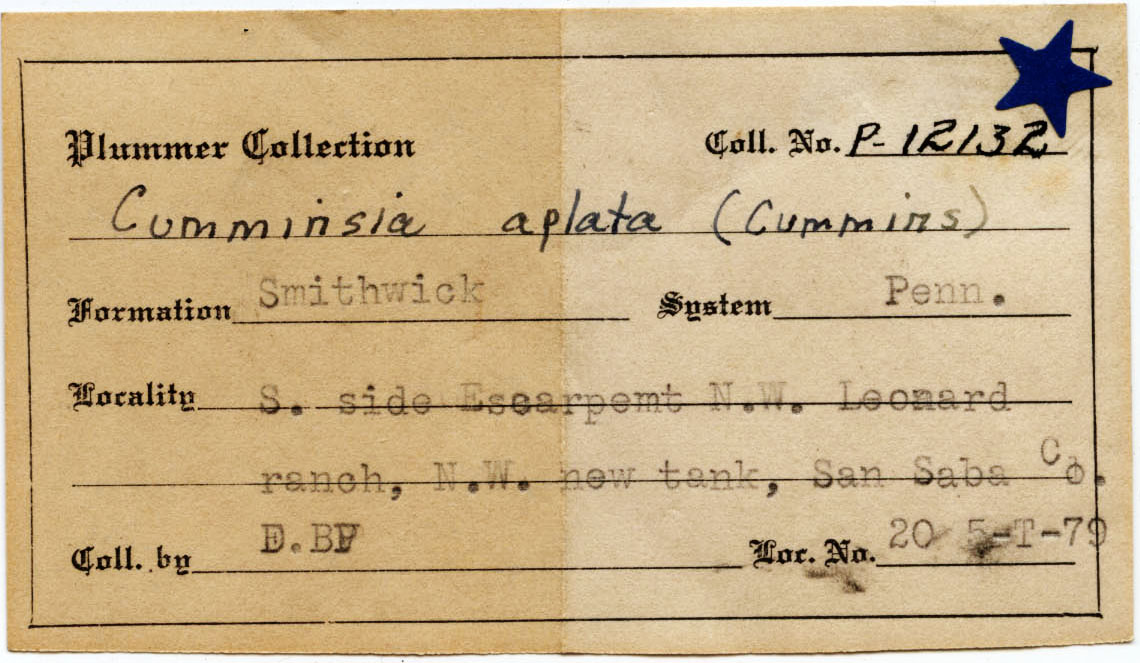 Plummer Collection Coll. No. P-12132
Cumminsia aplata (Cummins)
Formation Smithwick System Penn.
Locality S. side Escarpemt N.W. Leonard
ranch, N.W. new tank, San Saba Co.
Coll. by Loc. No. 205-T-79